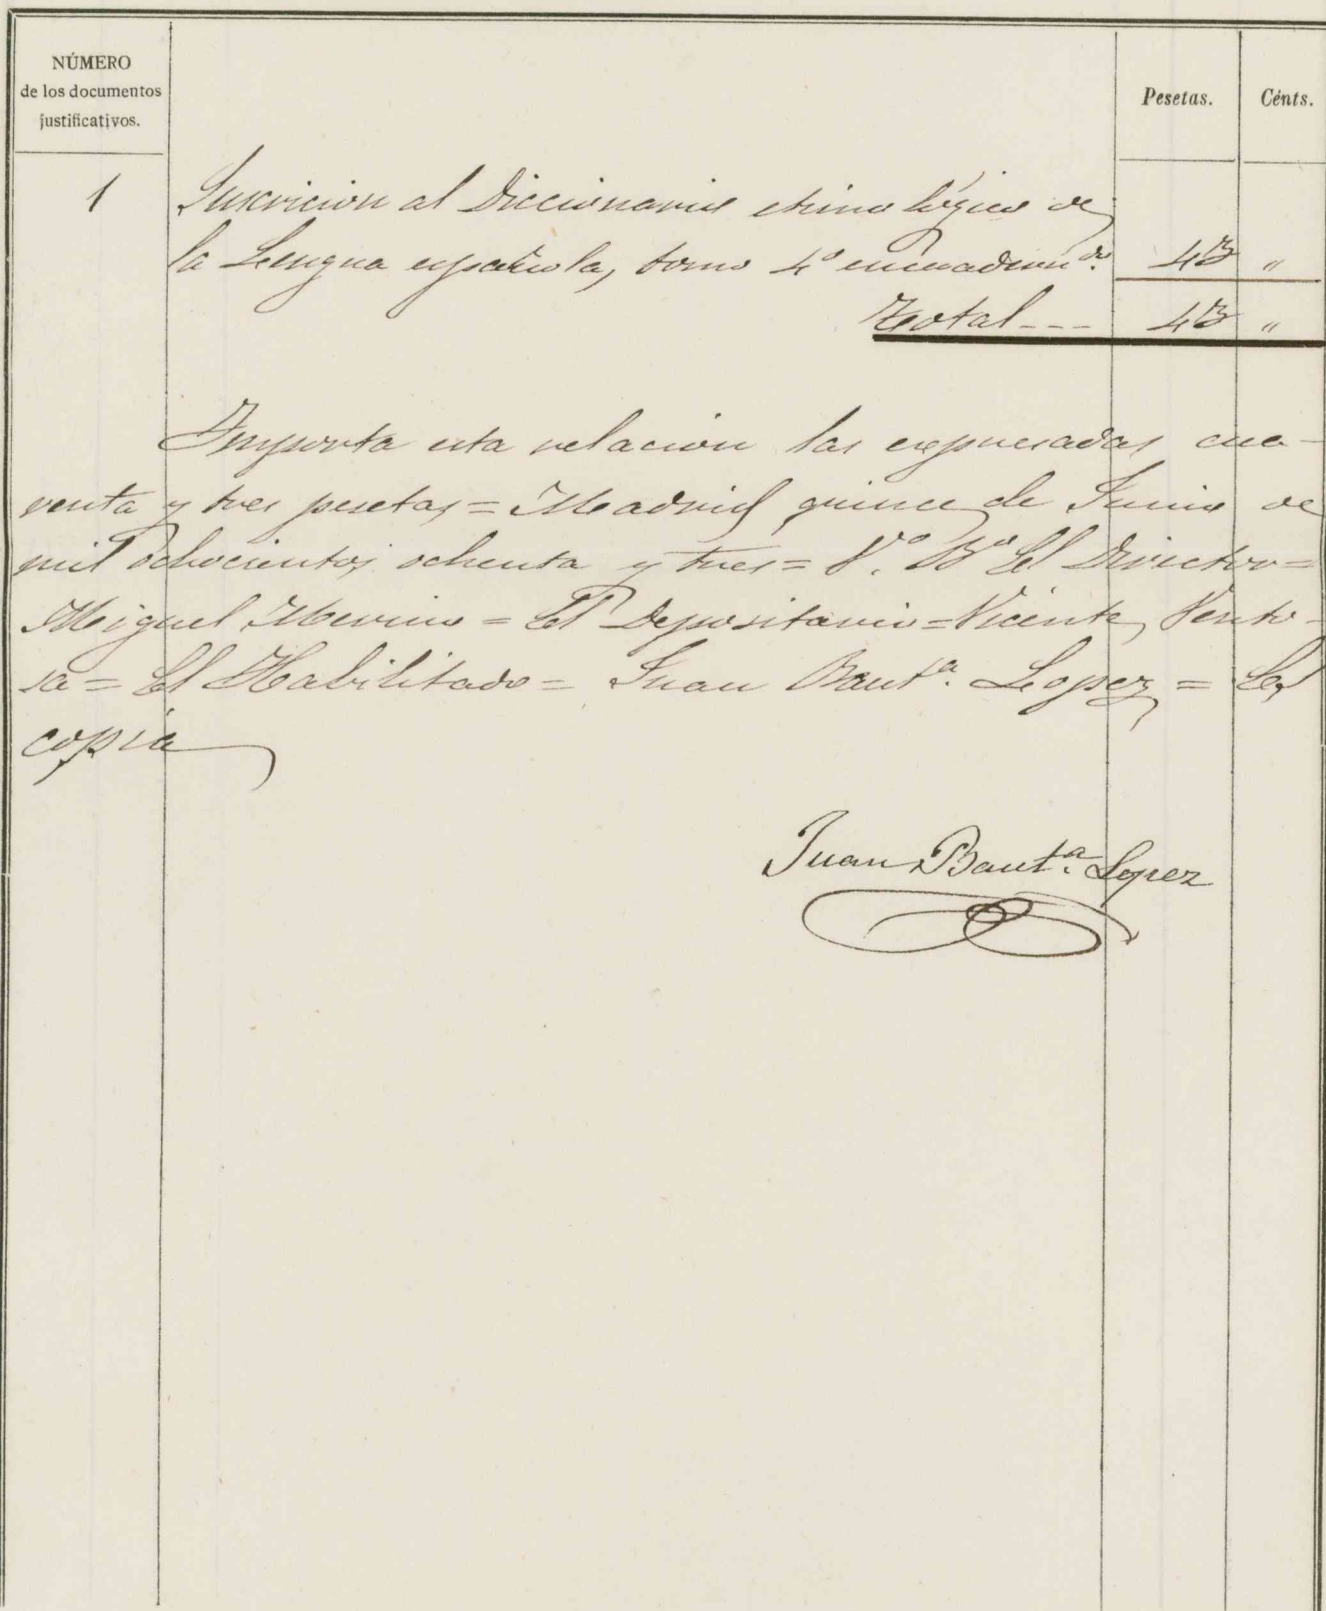 NÚMERO
de los documentos
justificativos.
Pesetas.
Cénts.
1 Suscricion al Diccionario etimológico de
la Lengua española, tomo 4º encuaderndo. 43 "
Total --- 43 "
Importa esta relacion las expresadas cua-
renta y tres pesetas = Madrid quince de Junio de
mil ochocientos ochenta y tres = Vº. Bº El Director =
Miguel Merino = El Depositario = Vicente Vento-
sa = El Habilitado = Juan Bautª. Lopez = Es
copia
Juan Bautª. Lopez